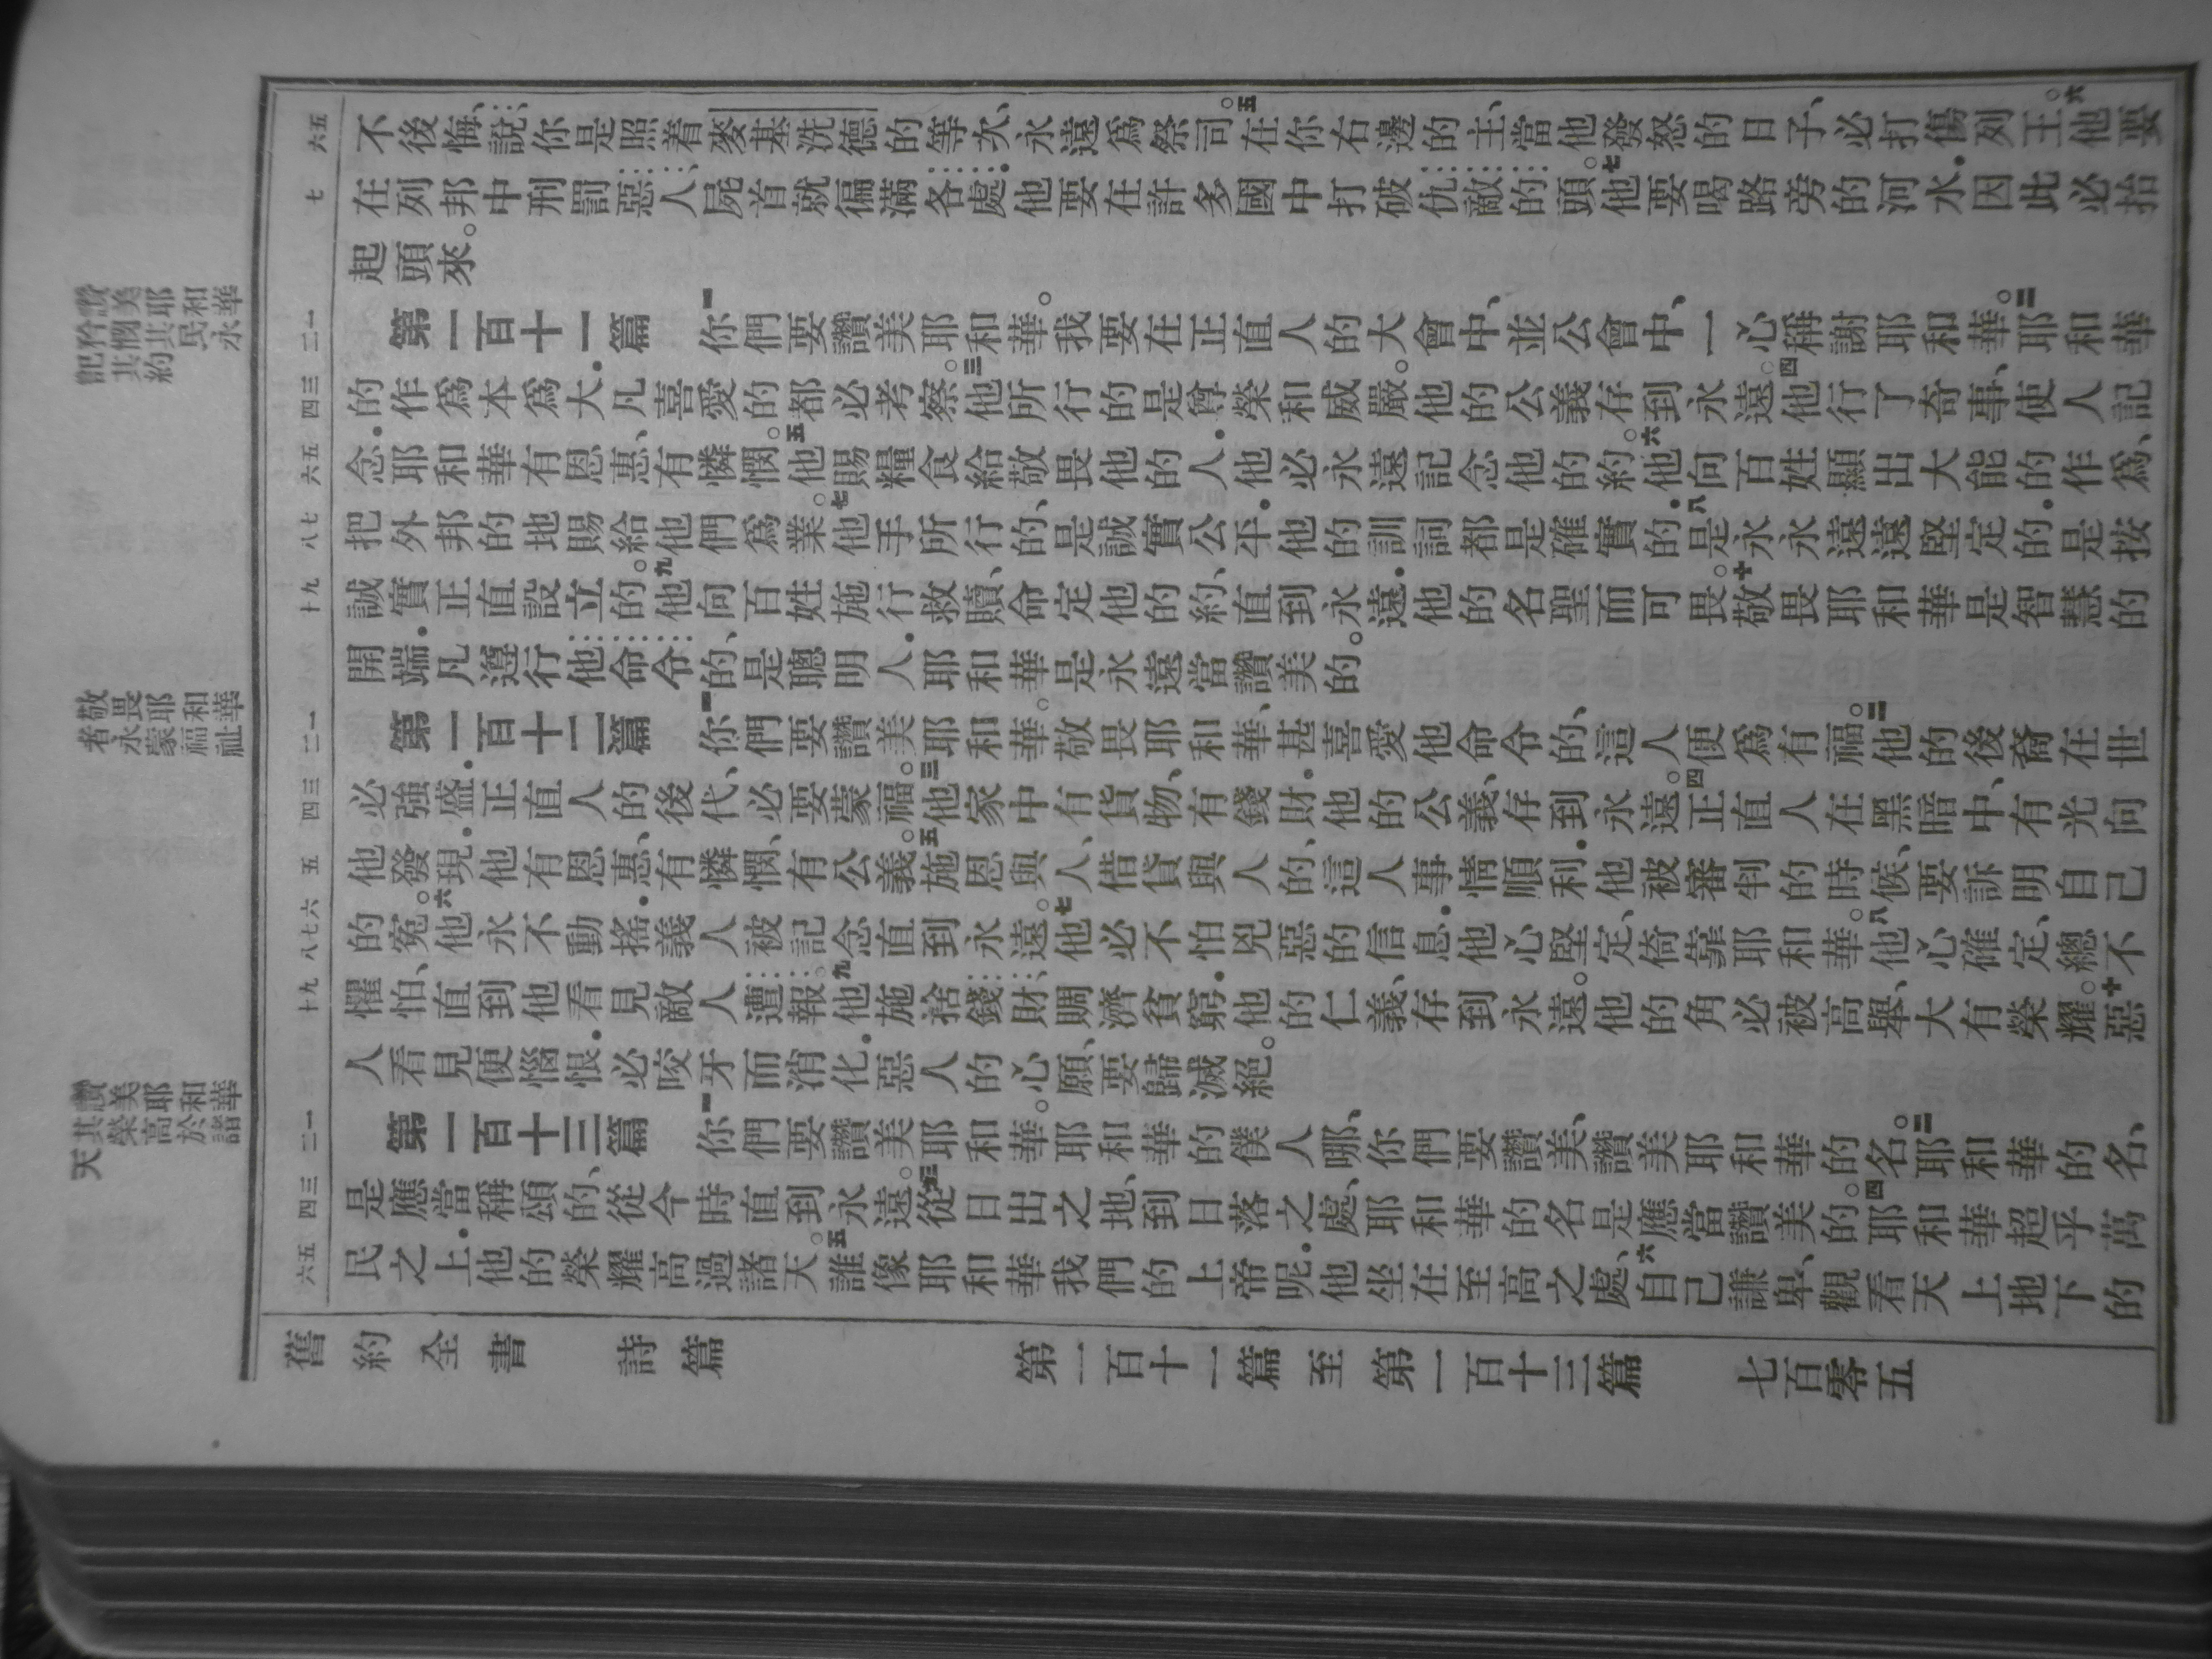 讚美耶和華
矜憫其民永
記其約
敬畏耶和華
者永蒙福祉
讚美耶和華
其榮高於諸
天
五六
不後悔、說、你是照着麥基洗德的等次、永遠爲祭司。五在你右邊的主、當他發怒的日子、必打傷列王。六他要
七
在列邦中刑罰惡人、屍首就徧滿各處.他要在許多國中打破仇敵的頭。七他要喝路旁的河水.因此必抬
起頭來。
一二
第一百十一篇 一你們要讚美耶和華。我要在正直人的大會中、並公會中、一心稱謝耶和華。二耶和華
三四
的作爲本爲大.凡喜愛的都必考察。三他所行的是尊榮和威嚴。他的公義存到永遠。四他行了奇事、使人記
五六
念.耶和華有恩惠、有憐憫。五他賜糧食給敬畏他的人.他必永遠記念他的約。六他向百姓顯出大能的作爲、
七八
把外邦的地賜給他們爲業。七他手所行的、是誠實公平.他的訓詞都是確實的.八是永永遠遠堅定的.是按
九十
誠實正直設立的。九他向百姓施行救贖、命定他的約、直到永遠.他的名聖而可畏。十敬畏耶和華是智慧的
開端.凡遵行他命令的、是聰明人.耶和華是永遠當讚美的。
一二
第一百十二篇 一你們要讚美耶和華。敬畏耶和華、甚喜愛他命令的、這人便爲有福。二他的後裔在世
三四
必強盛.正直人的後代、必要蒙福。三他家中有貨物、有錢財.他的公義、存到永遠。四正直人在黑暗中、有光向
五
他發現.他有恩惠、有憐憫、有公義。五施恩與人、借貸與人的、這人事情順利.他被審判的時候、要訴明自己
六七八
的冤。六他永不動搖.義人被記念直到永遠。七他必不怕兇惡的信息.他心堅定、倚靠耶和華。八他心確定、總不
九十
懼怕、直到他看見敵人遭報。九他施捨錢財、賙濟貧窮.他的仁義、存到永遠。他的角必被高舉、大有榮耀。十惡
人看見便惱恨.必咬牙而消化.惡人的心願、要歸滅絕。
一二
第一百十三篇 一你們要讚美耶和華。耶和華的僕人哪、你們要讚美、讚美耶和華的名。二耶和華的名、
三四
是應當稱頌的、從今時直到永遠。三從日出之地、到日落之處、耶和華的名是應當讚美的。四耶和華超乎萬
五六
民之上.他的榮耀高過諸天。五誰像耶和華我們的上帝呢.他坐在至高之處、六自己謙卑、觀看天上地下的
舊約全書 詩篇 第一百十一篇至第一百十三篇 七百零五